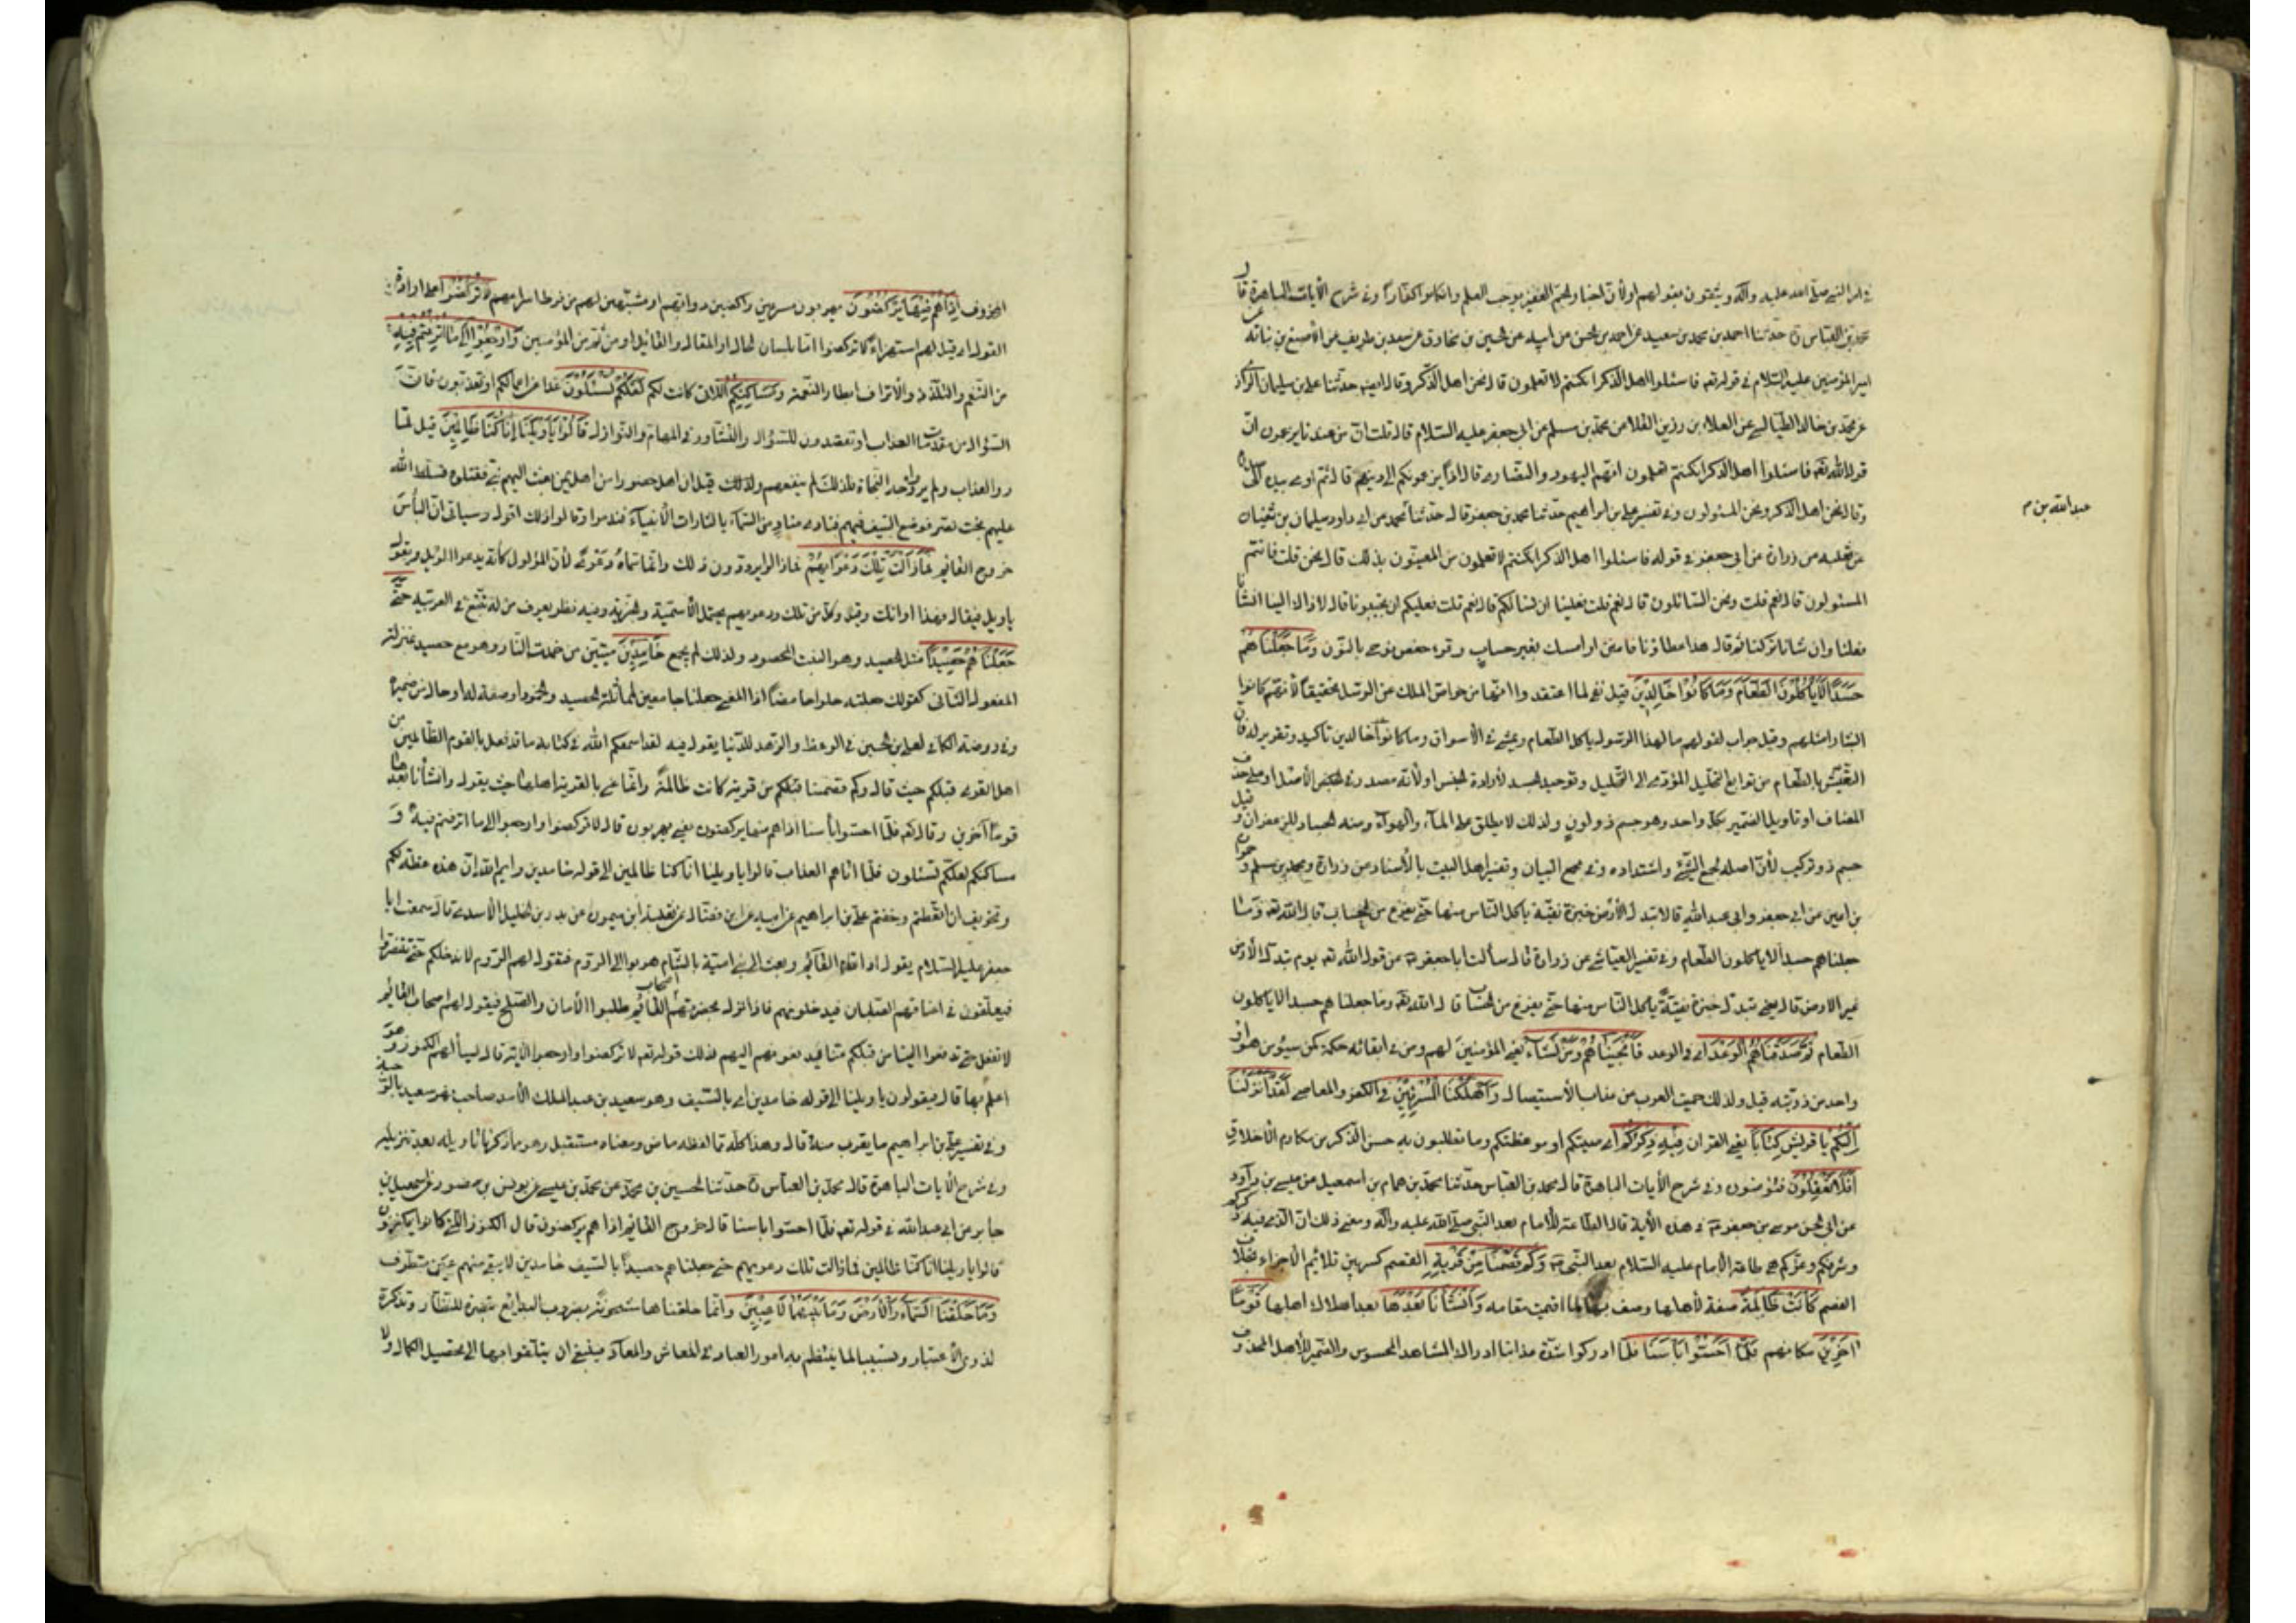 في امر النبي صلى الله عليه وآله ويثقون بقولهم اولأن اخبار الجم الغفير يوجب العلم وان كانوا كفارا وفي شرح الآيات الباهرة قال
محمد بن العباس ره حدثنا احمد بن محمد بن سعيد عن احمد بن الحسن عن ابيه عن الحسين بن مخارق عن سعد بن طريف عن الاصبغ بن نباته عن
امير المؤمنين عليه السلام في قوله تعه فاسئلوا اهل الذكر ان كنتم لا تعلمون قال نحن اهل الذكر وقال ايضه حدثنا علي بن سليمان الرازي
عن محمد بن خالد الطيالسي عن العلاء بن رزين القلا عن محمد بن مسلم عن ابي جعفر عليه السلام قال قلت ان من عندنا يزعمون ان
قول الله تعه فاسئلوا اهل الذكر ان كنتم تعلمون انهم اليهود والنصارى قال اذا يدعونكم الى دينهم قال ثم اومى بيده الى صدره
وقال نحن اهل الذكر ونحن المسئولون وفي تفسير علي بن ابراهيم حدثنا محمد بن جعفر قال حدثنا محمد عن ابي داود سليمان بن سفيان
عن ثعلبه عن زرارة عن ابي جعفر في قوله فاسئلوا اهل الذكر ان كنتم لا تعلمون من المعنون بذلك قال نحن قلت فانتم
المسئولون قال نعم قلت ونحن السائلون قال نعم قلت فعلينا ان نسالكم قال نعم قلت فعليكم ان تجيبونا قال لا ذاك الينا ان شئنا
فعلنا وان شئنا تركنا ثم قال هذا عطاؤنا فامنن او امسك بغير حساب وقرء حفص نوحي بالنون وَمَا جَعَلْنَاهُمْ
جَسَدًا لَا يَأْكُلُونَ الطَّعَامَ وَمَا كَانُوا خَالِدِينَ قيل نفي لما اعتقدوا انها من خواص الملك عن الرسل تحقيقا لأنهم كانوا
ابشارا مثلهم وقيل جواب لقولهم ما لهذا الرسول ياكل الطعام ويمشي في الأسواق وما كانوا خالدين تأكيد وتقرير له فان
التعيش بالطعام من توابع التحليل المؤدي الى التحليل وتوحيد الجسد لأرادة الجنس اولأنه مصدر في الاصل او على حذف
المضاف او تاويل الضمير بكل واحد وهو جسم ذو لون ولذلك لا يطلق على الماء والهواء ومنه الجساد للزعفران وقيل
جسم ذو تركيب لأن اصله لجمع الشيء واشتداده وفي مجمع البيان وتفسير اهل البيت بالأسناد عن زرارة ومحمد بن مسلم وحمران
بن اعين عن ابي جعفر وابي عبد الله قالا تبدل الأرض خبزة نقية ياكل الناس منها حتى يفرغ من الحساب قال الله تعه وما
جعلناهم جسدا لا ياكلون الطعام وفي تفسير العياشي عن زرارة قال سألت ابا جعفر عه عن قول الله تعه يوم تبدل الأرض
غير الارض قال يعني تبدل خبزة نقية ياكل الناس منها حتى يفرغ من الحساب قال الله تعه وما جعلناهم جسدا لا ياكلون
الطعام ثُمَّ صَدَقْنَاهُمُ الْوَعْدَ اي في الوعد فَأَنْجَيْنَاهُمْ وَمَنْ نَشَاءُ يعني المؤمنين لهم ومن في ابقائه حكمة كمن سيؤمن هو او
واحد من ذريته قيل ولذلك حميت العرب من عذاب الأستيصال وَأَهْلَكْنَا الْمُسْرِفِينَ في الكفر والمعاصي لَقَدْ أَنْزَلْنَا
إِلَيْكُمْ يا قريش كِتَابًا يعني القران فِيهِ ذِكْرُكُمْ اي صيتكم او موعظتكم وما تطلبون به حسن الذكر من مكارم الأخلاق
أَفَلَا تَعْقِلُونَ فتؤمنون وفي شرح الأيات الباهرة قال محمد بن العباس حدثنا محمد بن همام بن اسمعيل عن عيسى بن داود
عن ابي الحسن موسى بن جعفر عه في هذه الأية قال الطاعة للأمام بعد النبي صلى الله عليه وآله ومعنى ذلك ان الذي فيه ذكركم
وشرفكم وعزكم هي طاعة الأمام عليه السلام بعد النبي صه وَكَمْ قَصَمْنَا مِنْ قَرْيَةٍ القصم كسر يبين تلائم الاجزاء بخلاف
الفصم كَانَتْ ظَالِمَةً صفة لأهلها وصف بها لما اقيمت مقامه وَأَنْشَأْنَا بَعْدَهَا بعد اهلاك اهلها قَوْمًا
آخَرِينَ مكانهم فَلَمَّا أَحَسُّوا بَأْسَنَا فلما ادركوا شدة عذابنا ادراك المشاهد المحسوس والضمير للأهل المحذوف
عبد الله بن م
المحذوف إِذَا هُمْ مِنْهَا يَرْكُضُونَ يهربون مسرعين راكضين دوابهم او مشبهين لهم من فرط اسراعهم لَا تَرْكُضُوا على ارادة
القول اي قيل لهم استهزاء لا تركضوا اما بلسان الحال او المقال والقائل او من ثم من المؤمنين وَارْجِعُوا إِلَى مَا أُتْرِفْتُمْ فِيهِ
من التنعم والتلذذ والأتراف ابطار النعمة وَمَسَاكِنِكُمْ اللاتي كانت لكم لَعَلَّكُمْ تُسْئَلُونَ غدا عن اعمالكم او تعذبون فان
السؤال من مقدمات العذاب او تقصدون للسؤال والتشاور في المهام والنوازل قَالُوا يَا وَيْلَنَا إِنَّا كُنَّا ظَالِمِينَ قيل لما
رأوا العذاب ولم يروا وجه النجاة فلذلك لم ينفعهم ولذلك قيل ان اهل حضور من اهل يمن بعث اليهم نبي فقتلوه فسلط الله
عليهم بخت نصر فوضع السيف فيهم فنادى مناد من السماء يا لثارات الأنبياء فندموا وقالوا ذلك اقول وسياتي ان البأس
خروج القائم فَمَا زَالَتْ تِلْكَ دَعْوَاهُمْ فما زالوا يرددون ذلك وانما سماه دعوى لأن المولول كأنه يدعو الويل ويقول
يا ويل فيقال فهذا اوانك وقيل وكل من تلك ودعويهم يحتمل الأسمية والخبرية وفيه نظر يعرف من له تتبع في العربية حَتَّى
جَعَلْنَاهُمْ حَصِيدًا مثل الحصيد وهو النبت المحصود ولذلك لم يجمع خَامِدِينَ ميتين من خمدت النار وهو مع حصيد بمنزلة
المفعول الثاني كقولك جعلته حلوا حامضا اذ المعنى جعلنا جامعين لمماثلة الحصيد والخمود او صفة له او حال من ضميره
وفي روضة الكافي لعلي بن الحسين في الوعظ والزهد للدنيا يقول فيه لقد اسمعكم الله في كتابه ما قد فعل بالقوم الظالمين من
اهل القرى قبلكم حيث قال وكم قصمنا قبلكم من قرية كانت ظالمة وانما عنى بالقرية اهلها حيث يقول وانشأنا بعدها
قوما آخرين وقال تعه فلما احسوا بأسنا اذا هم منها يركضون يعني يهربون قال لا تركضوا وارجعوا الى ما اترفتم فيه و
مساكنكم لعلكم تسئلون فلما اتاهم العذاب قالوا يا ويلنا انا كنا ظالمين الى قوله خامدين وايم الله ان هذه عظة لكم
وتخويف ان اتعظتم وخفتم علي بن ابراهيم عن ابيه عن ابن فضال عن ثعلبة ابن ميمون عن بدر بن الخليل الأسدي قال سمعت ابا
جعفر عليه السلام يقول اذا قام القائم وبعث الى بني امية بالشام هربوا الى الروم فتقول لهم الروم لا ندخلكم حتى تتنصروا
فيعلقون في اعناقهم الصلبان فيدخلونهم فاذا نزل بحضرتهم اصحاب القائم طلبوا الأمان والصلح فيقول لهم اصحاب القائم
لا نفعل حتى تدفعوا الينا من قبلكم منا فيدفعونهم اليهم فذلك قوله تعه لا تركضوا وارجعوا الأية قال يسألهم الكنوز وهو
اعلم بها قال فيقولون يا ويلنا الى قوله خامدين اي بالسيف وهو سعيد بن عبد الملك الأسد صاحب نهر سعيد بالرحبة
وفي تفسير علي بن ابراهيم ما يقرب منه قال وهذا كله مما لفظه ماض ومعناه مستقبل وهو ما ذكرناه تاويله بعد تنزيله
وفي شرح الأيات الباهرة قال محمد بن العباس ره حدثنا الحسين بن محمد عن محمد بن عيسى عن يونس بن منصور عن اسمعيل بن
جابر عن ابي عبد الله في قوله تعه فلما احسوا باسنا قال خروج القائم اذا هم يركضون قال الكنوز التي كانوا يكنزون
قالوا يا ويلنا انا كنا ظالمين فما زالت تلك دعويهم حتى جعلناهم حصيدا بالسيف خامدين لا يبقى منهم عين تطرف
وَمَا خَلَقْنَا السَّمَاءَ وَالْأَرْضَ وَمَا بَيْنَهُمَا لَاعِبِينَ وانما خلقناها مشحونة بضروب البدايع تبصرة للنظار وتذكرة
لذوي الأعتبار وتسبيبا لما ينتظم به امور العباد في المعاش والمعاد فينبغي ان يتسلقوا بها الى تحصيل الكمال ولا